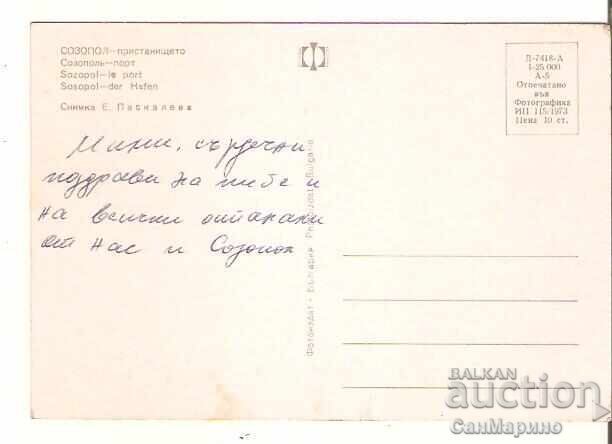 СОЗОПОЛ—пристанището
Созополь—порт
Sozopol—le port
Sosopol—der Hafen
Снимка Е. Паскалева
Д-7418-А
1-25 000
А-5
Отпечатано
във
Фотографика
ИП 115/1973
Цена 10 ст.
Мими, сърдечни
поздрави на тебе и
на всички останали
от нас и Созопол
Фотоиздат - България Photoizdat - Bulgaria
BALKAN
auction
СанМарино